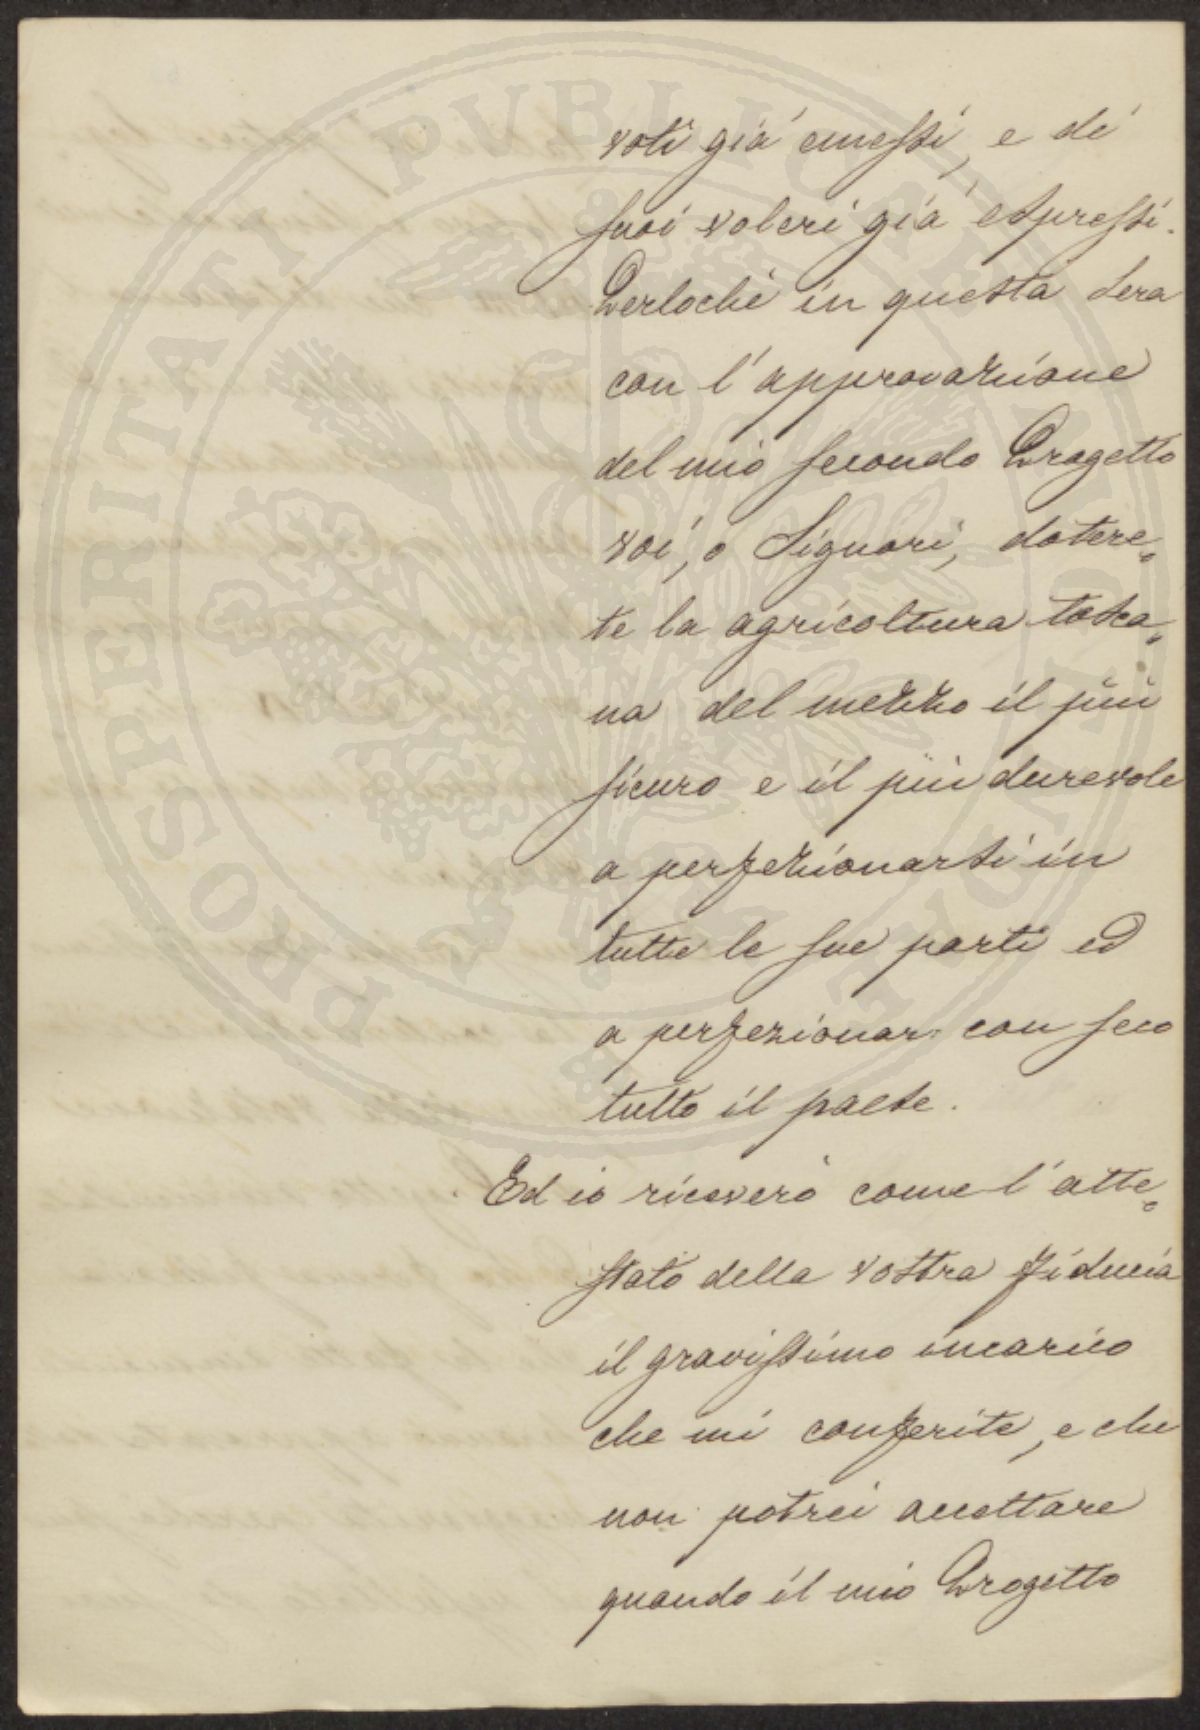 voti già emessi, e de'
suoi voleri già espressi.
Perloché in questa sera
con l'approvazione
del mio secondo Progetto
voi, o Signori, dotere=
te la agricoltura tosca=
na del mezzo il più
sicuro e il più durevole
a perfezionarsi in
tutte le sue parti ed
a perfezionar con seco
tutto il paese.
Ed io riceverò come l'atte=
stato della vostra fiducia
il gravissimo incarico
che mi conferite, e che
non potrei accettare
quando il mio Progetto
PROSPERITATI PUBLICAE AUGENDAE